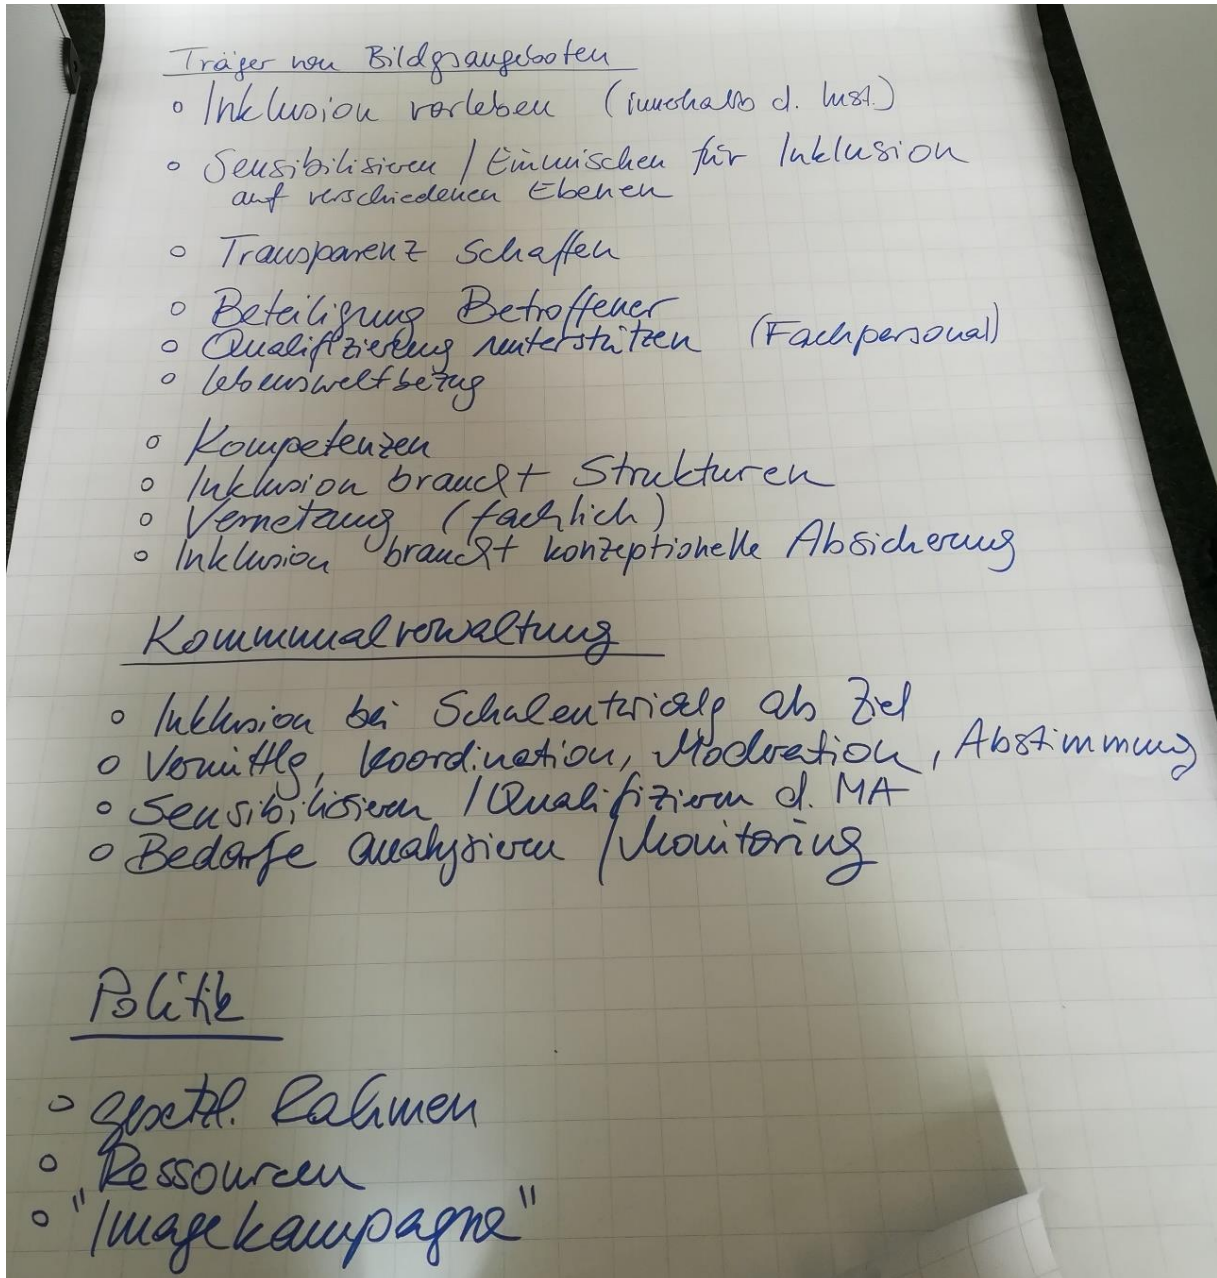 Träger von Bildgsangeboten
○ Inklusion vorleben (innerhalb d. Inst.)
○ Sensibilisieren / Einmischen für Inklusion
auf verschiedenen Ebenen
○ Transparenz schaffen
○ Beteiligung Betroffener
○ Qualifizierung unterstützen (Fachpersonal)
○ Lebensweltbezug
○ Kompetenzen
○ Inklusion braucht Strukturen
○ Vernetzung (fachlich)
○ Inklusion braucht konzeptionelle Absicherung
Kommunalverwaltung
○ Inklusion bei Schulentwicklg als Ziel
○ Vermittlg, Koordination, Moderation, Abstimmung
○ Sensibilisieren / Qualifizieren d. MA
○ Bedarfe analysieren / Monitoring
Politik
○ gesetzl. Rahmen
○ Ressourcen
○ "Imagekampagne"